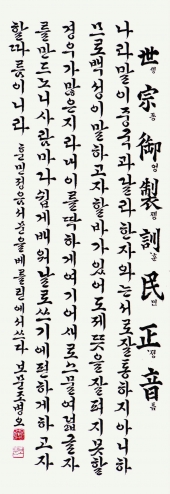 世솅宗종御엉製졩訓훈民민正졍音흠
나라말이중국과달라한자와는서로잘통하지아니하
므로백성이말하고자할바가있어도제뜻을잘펴지못할
경우가많은지라내이를딱하게여기어새로스물여덟글자
를만드노니사람마다쉽게배워날로쓰기에편하게하고자
할따름이니라 훈민정음서문을베를린에서쓰다